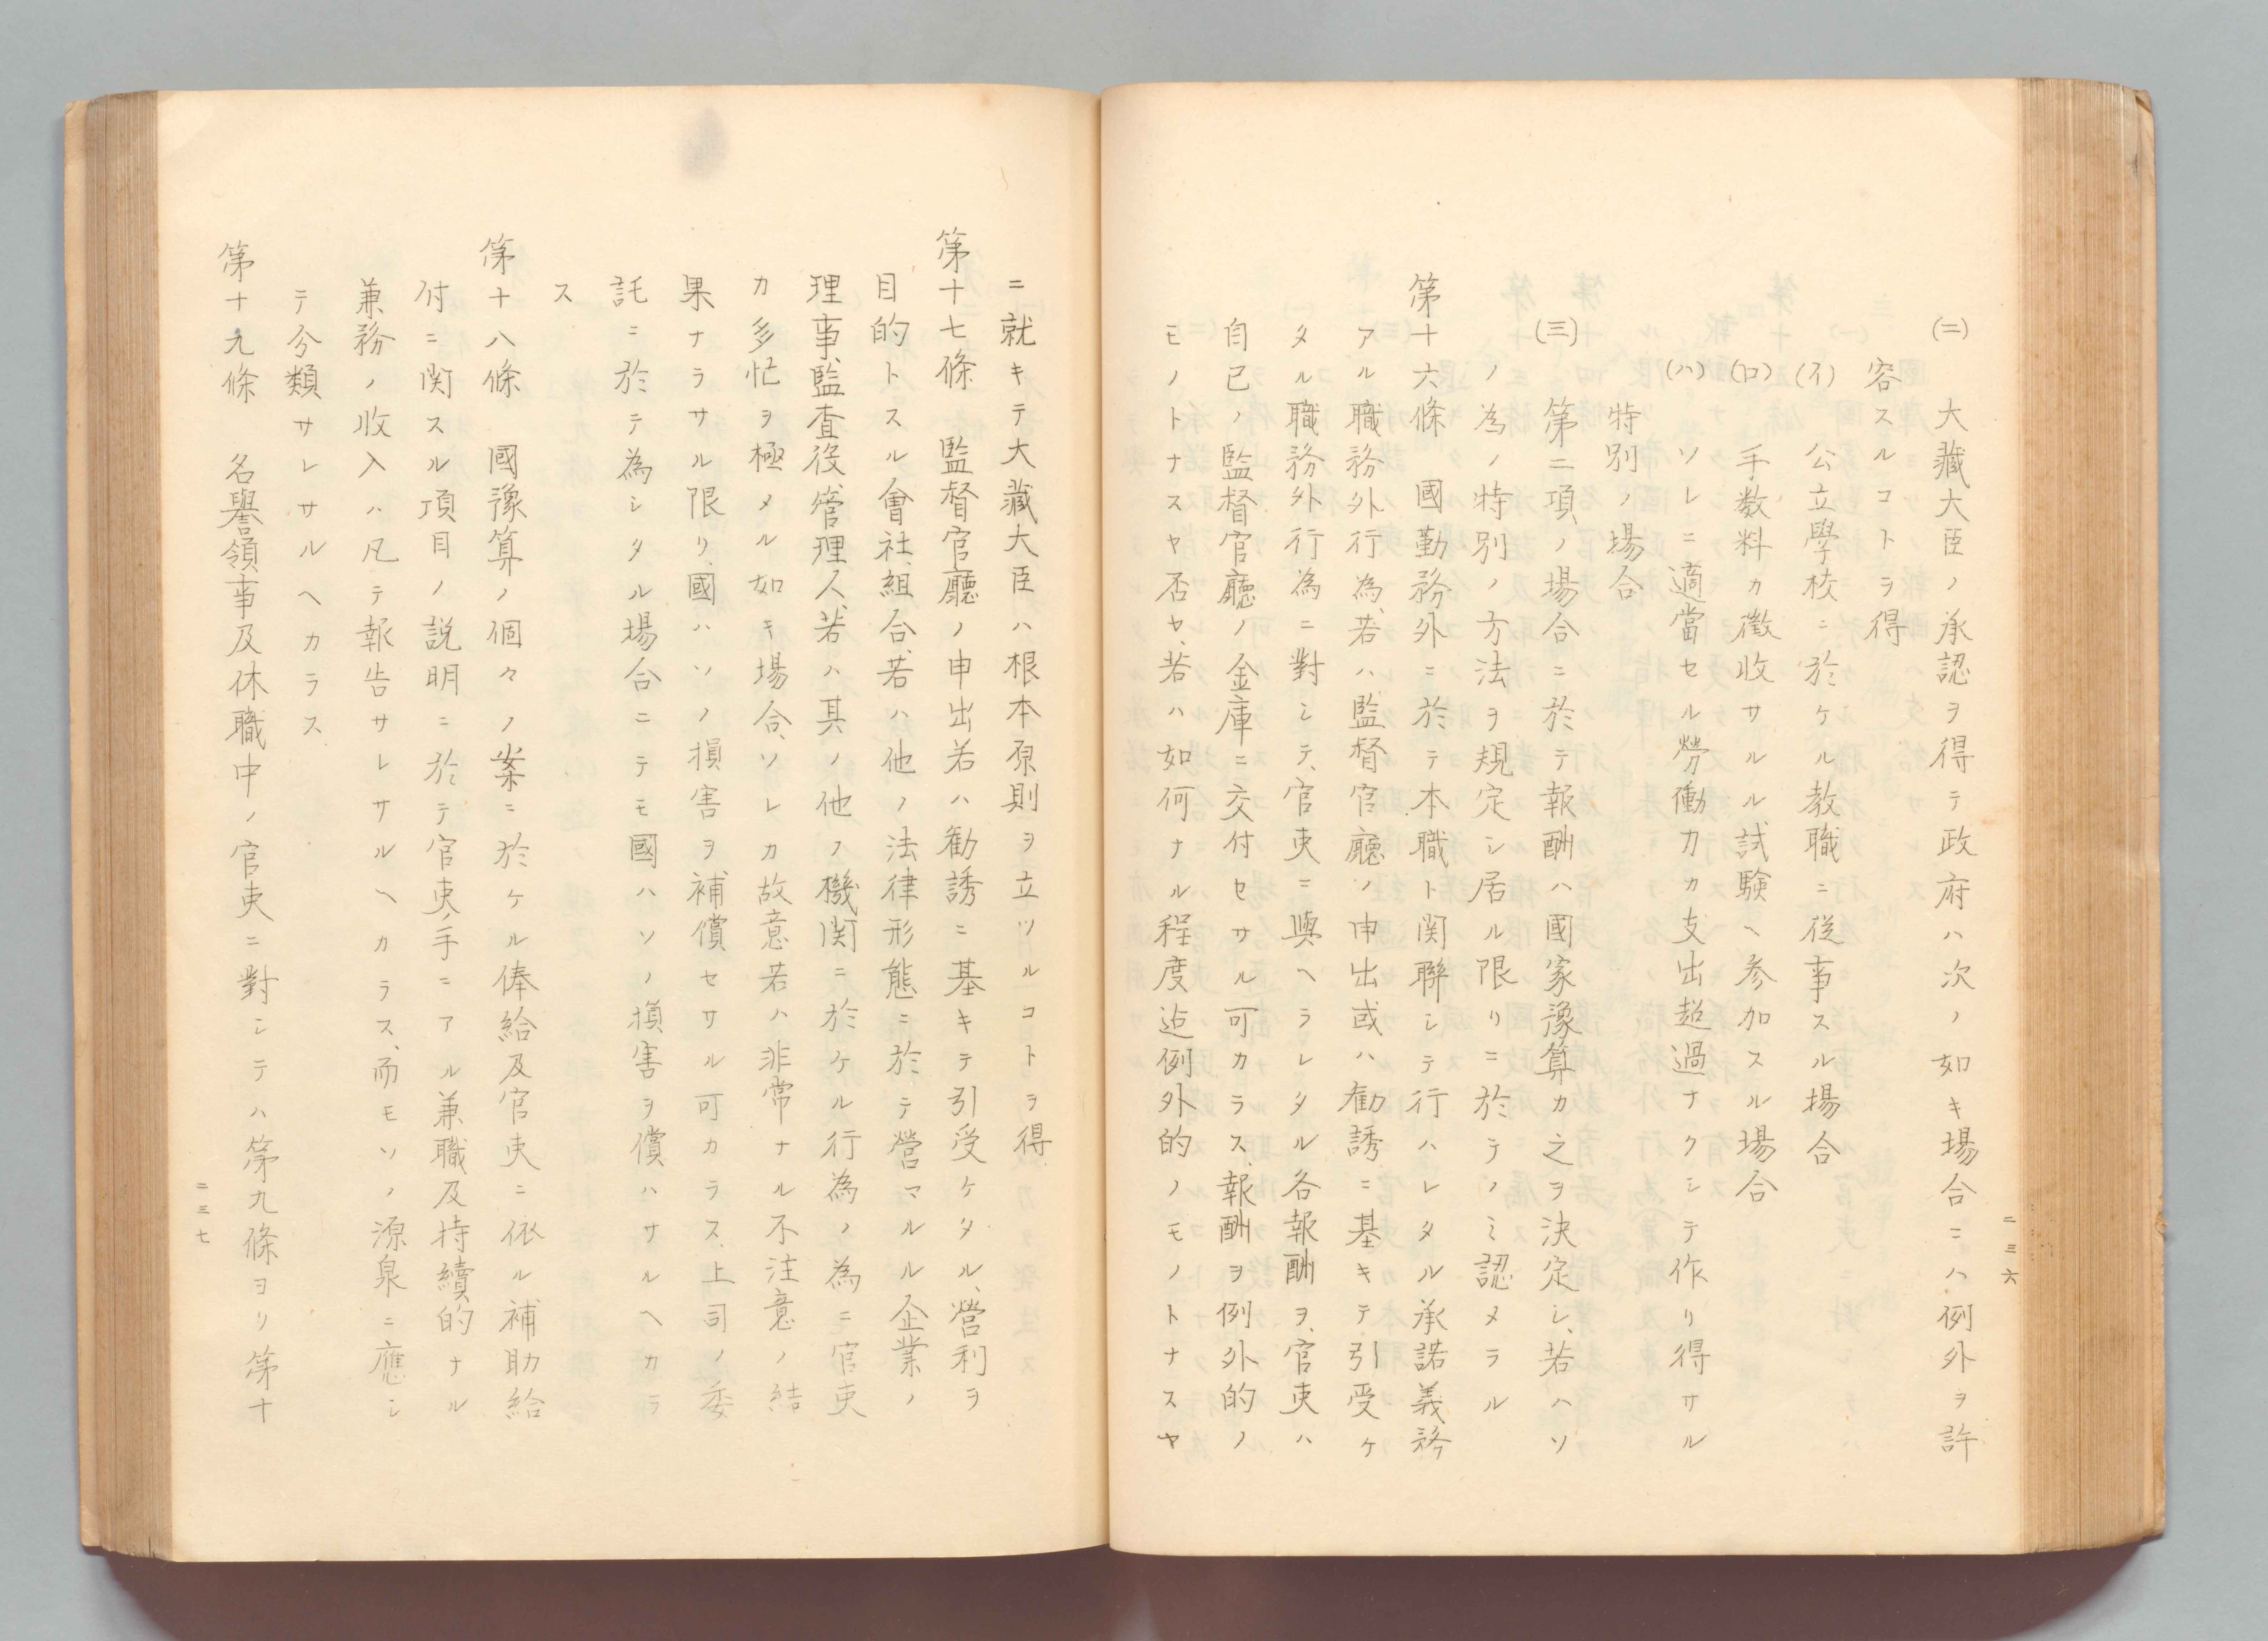 (二) 大藏大臣ノ承認ヲ得テ政府ハ次ノ如キ場合ニハ例外ヲ許
容スルコトヲ得
(イ) 公立學校ニ於ケル教職ニ従事スル場合
(ロ) 手数料カ徴收サルル試験ヘ参加スル場合
(ハ) ソレニ適當セル勞働力カ支出超過ナクシテ作リ得サル
特別ノ場合
(三) 第二項ノ場合ニ於テ報酬ハ國家豫算カ之ヲ決定シ、若ハソ
ノ為ノ特別ノ方法ヲ規定シ居ル限リニ於テノミ認メラル
第十六條 國勤務外ニ於テ本職ト関聯シテ行ハレタル承諾義務
アル職務外行為、若ハ監督官廳ノ申出或ハ勧誘ニ基キテ引受ケ
タル職務外行為ニ對シテ、官吏ニ與ヘラレタル各報酬ヲ、官吏ハ
自己ノ監督官廳ノ金庫ニ交付セサル可カラス、報酬ヲ例外的ノ
モノトナスヤ否ヤ、若ハ如何ナル程度迠例外的ノモノトナスヤ
二三六
ニ就キテ大藏大臣ハ根本原則ヲ立ツルコトヲ得
第十七條 監督官廳ノ申出若ハ勧誘ニ基キテ引受ケタル、營利ヲ
目的トスル會社、組合、若ハ他ノ法律形態ニ於テ營マルル企業ノ
理事、監査役、管理人、若ハ其ノ他ノ機関ニ於ケル行為ノ為ニ官吏
カ多忙ヲ極メル如キ場合、ソレカ故意若ハ非常ナル不注意ノ結
果ナラサル限リ、國ハソノ損害ヲ補償セサル可カラス、上司ノ委
託ニ於テ為シタル場合ニテモ國ハソノ損害ヲ償ハサルヘカラ
ス
第十八條 國豫算ノ個々ノ案ニ於ケル俸給及官吏ニ依ル補助給
付ニ関スル項目ノ説明ニ於テ官吏ノ手ニアル兼職及持續的ナル
兼務ノ收入ハ凡テ報告サレサルヘカラス、而モソノ源泉ニ應シ
テ分類サレサルヘカラス
第十九條 名譽領事及休職中ノ官吏ニ對シテハ第九條ヨリ第十
二三七